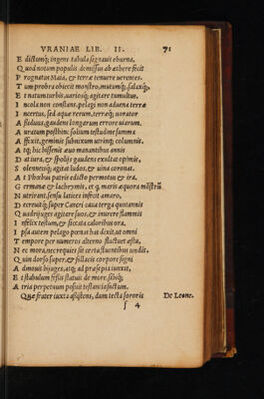 VRANIAE LIB. II. 71
E dictumq; ingens tabula segnauit eburna,
Q uod notum populis demissus ab aethere sicit
P rognatus Maia, & terrae tenuere uerentes.
T um probra obiecit monstro, mutumq; salaxq;
E t natum turbis, uariosq; agitare tumultus.
I ncola non constans, pelagi non aduena terrae
I ncertus, sed aquae rerum, terraeq; uorator
A ssiduus, gaudens longarum errore uiarum.
A uratum postibus solium testudine summa
A ffixit, geminis submixum utrinq; columnis.
A tq; hic bissenis aeuo manantibus annis
D at iura, & spoliis gaudens exultat opimis,
S olennesq; agitat ludos, & uina coronat.
A t Phoebus patriis edicto permotus & ira
G ermanae & lachrymis, et q, maris aequora monstrum
N utrirent, sensu latices infecit amaro,
D ecreuitq; super Cancri caua terga quotannis
Q uadriiuges agitare suos, & inurere flammis
I nfelix testum, & siccata caloribus ora.
I psa autem pelago pernox has dixit, ut omni
T empore per numeros alterno fluctuet aestu,
N ec mora, nec requies sit certa fluentibus undis.
Q uin dorso super, & fallacis corpore signi
A dmouit biiuges, atq; ad praesepia iunxit,
E t stabulum fessis statuit de more, sibiq;
A tria perpetuum posuit testantia factum.
Quae frater iuxta aspiciens, dum tecta sororis De Leone.
f 4